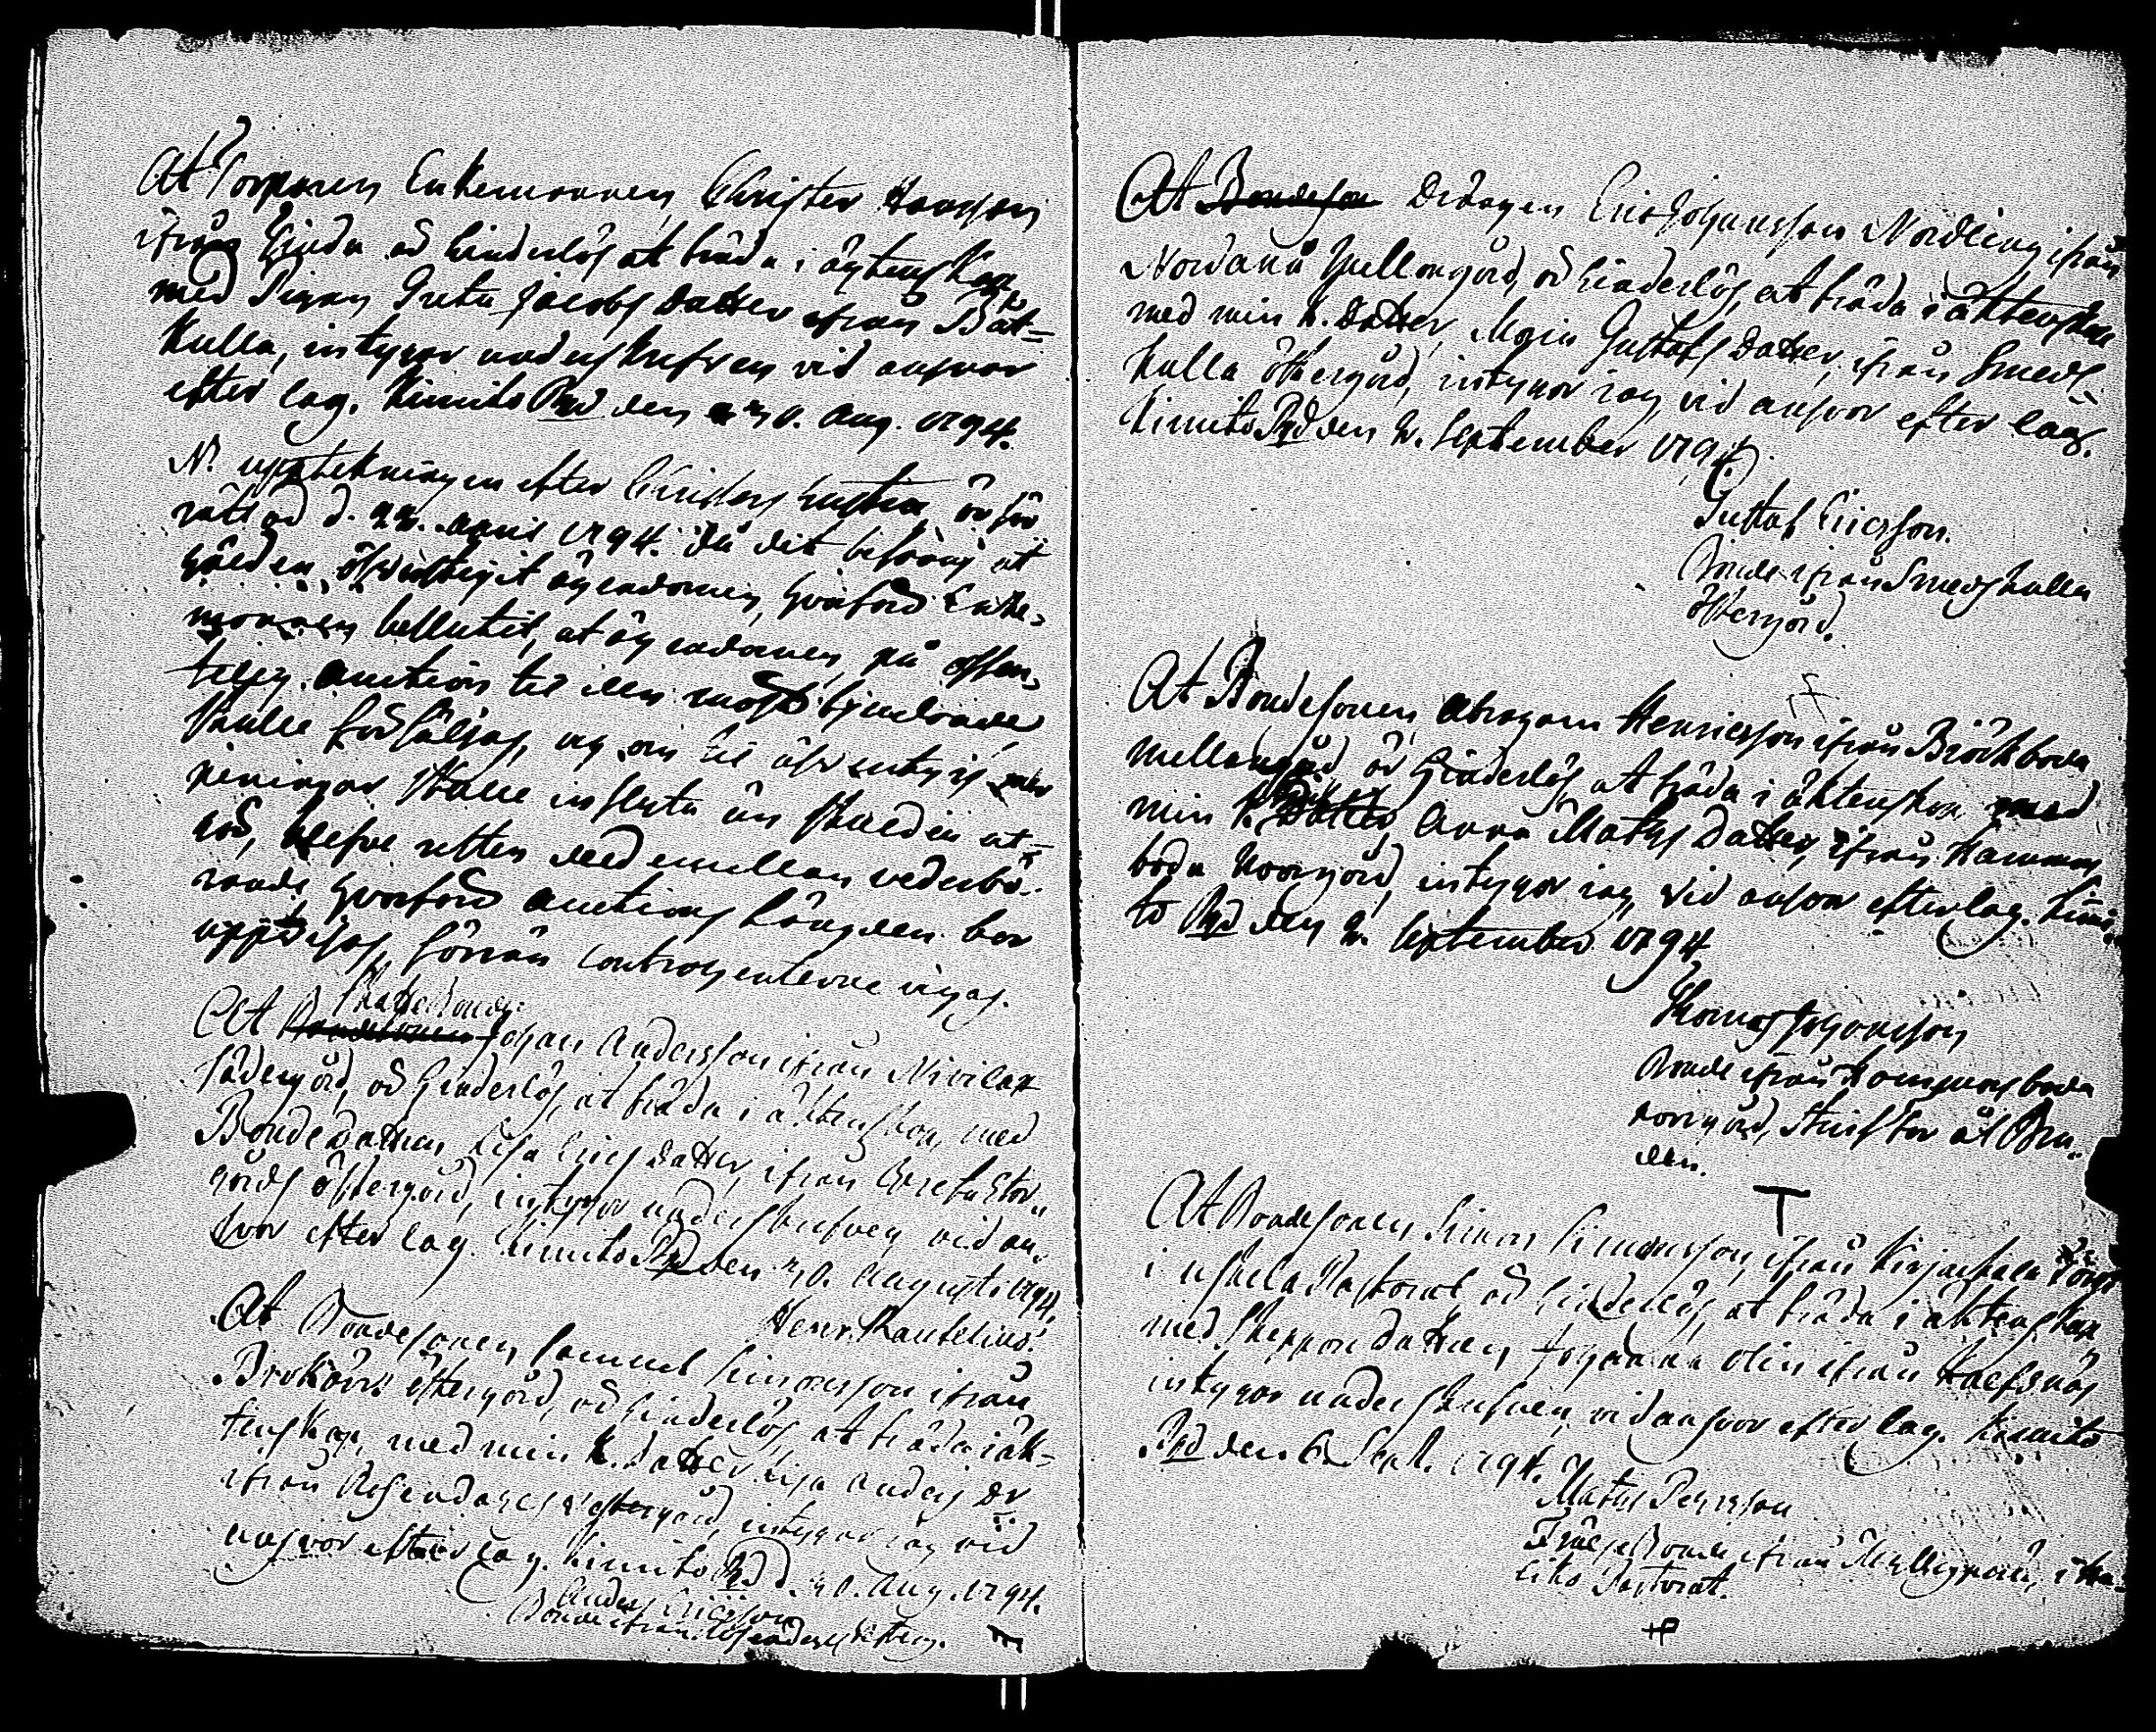 At Torparen Enkemannen Christer Hansson
ifrån Hinda är hinderlös at träda i ägtenskap
med Pigan Greta Jacobs Datter ifrån Båt-
kulla, intygar underskrefven vid answar
efter lag. Kimito Pgd den 30. Aug. 1794.
N. upptekningen efter Christers hustru är för
rättad d. 22. April 1794. då det befans at
gälden öfverstigit ägendomen, hvarföre Enke-
mannen beslutit, at ägendomen på offen-
telig auction til den mäst bjudande
skulle försäljas, og om til äfventyrs mer
peningar skulle inflyta än skulden at-
gör, blefve rätten dem emellan vederbö-
rande hvarföre auctions Längden bör
uppvisas, förrän contrahenterne vigas.
Skatte Bonden
At Bondesonen Johan Andersson ifrån Nivilax
Södergård, är hinderlös, at träda i äktenskap, med
Bonde Datteren Lisa Erics Datter, ifrån Wreta Stor-
gårds östergård, intygar underskrefven, vid an-
svar efter lag. Kimito Pgd den 30. Augusti 1794.
Henr. Rautelius.
At Bondesonen Samuel Simonsson ifrån
Brokärr östergård, är hinderlös, at träda i äk-
tenskap, med min k. Datter Lisa Anders Dr
ifrån Rosendahls västergård, intygar jag vid
answar efter lag. Kimito Pgd d. 30. Aug. 1794.
Anders Ericsson
Bonde ifrån Rosendahls
At Bondeson Drängen Eric Johansson Nordling ifrån
Nordanå Mellangård, är hinderlös, at träda i äktenskap
med min k. Datter, Maja Gustafs Datter, ifrån Smeds-
kulla östergård, intygar jag, vid answar efter lag.
Kimito Pgd den 2. September 1794.
Gustaf Ericsson.
Bonde ifrån Smedskulla
östergård.
At Bondesonen Abraham Henricsson ifrån Bröckboda
mellangård är hinderlös, at träda i äktenskap med
min k. Datter, Anna Mats Datter, ifrån Hammars
boda Norrgård, intygar jag, vid answar efter lag. Kimi-
to Pgd den 2. September 1794
Thomas Johansson
Bonde ifrån Hammars boda
norrgård, Stiffar åt Bru-
den.
At Bondesonen Simon Simonsson, ifrån
i Uskela Pastorat är hinderlös, at träda i äktenskap
med Skeppar Datteren Johanna Olin ifrån Kalfsnäs
intygar underskrefven, vid answar efter lag. Kimito
Pgd den 6. Sept. 1794.
Mats Persson
Frälse Bonde ifrån i Ha-
liko Pastorat.